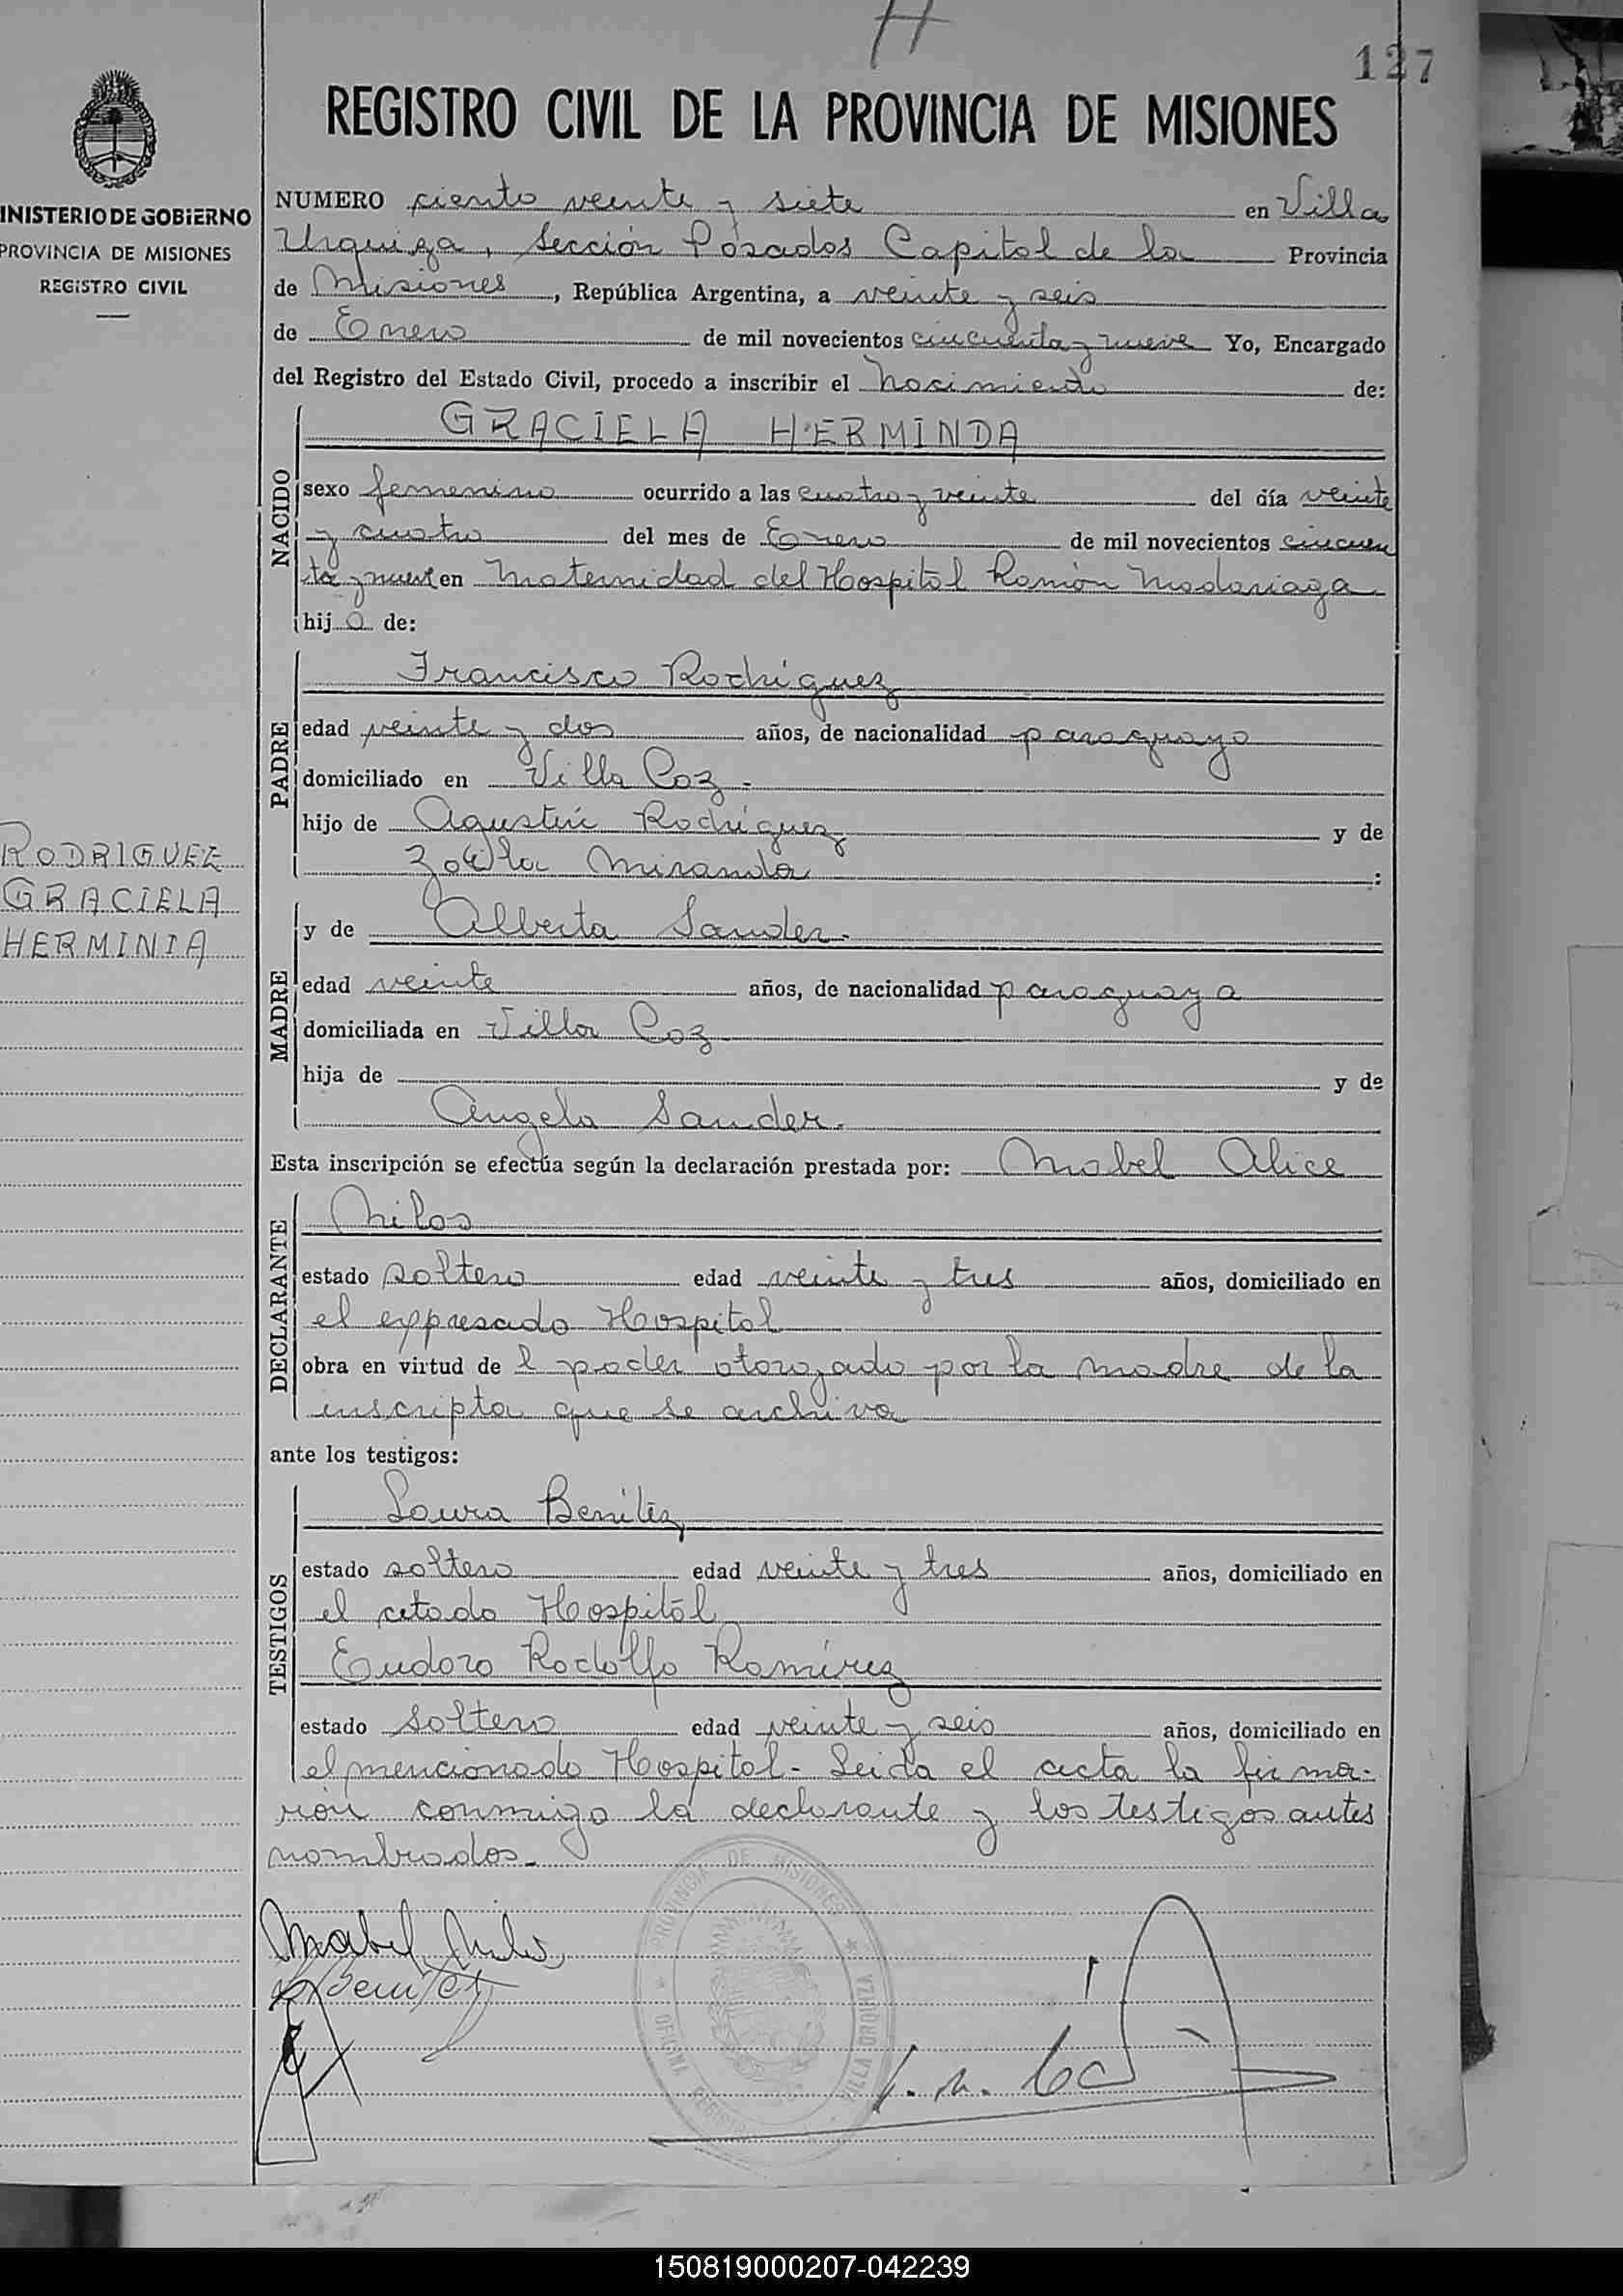 H
127
REGISTRO CIVIL DE LA PROVINCIA DE MISIONES
INISTERIO DE GOBIERNO
PROVINCIA DE MISIONES
REGISTRO CIVIL
NUMERO ciento veinte y siete en Villa
Urquiza, Sección Posadas Capital de la Provincia
de Misiones, República Argentina, a veinte y seis
de Enero de mil novecientos cincuenta y nueve Yo, Encargado
del Registro del Estado Civil, procedo a inscribir el nacimiento de:
NACIDO
GRACIELA HERMINDA
sexo femenino ocurrido a las cuatro y veinte del día veinte
y cuatro del mes de Enero de mil novecientos cincuen
ta y nueve en Maternidad del Hospital Ramón Madariaga
hij a de:
PADRE
Francisco Rodríguez
edad veinte y dos años, de nacionalidad paraguayo
domiciliado en Villa Coz.
hijo de Agustín Rodríguez y de
Zoila Miranda :
RODRIGUEZ
GRACIELA
HERMINIA
MADRE
y de Alberta Sander.
edad veinte años, de nacionalidad paraguaya
domiciliada en Villa Coz
hija de y de
Angela Sander.
Esta inscripción se efectúa según la declaración prestada por: Mabel Alice
DECLARANTE
Milos
estado soltera edad veinte y tres años, domiciliado en
el expresado Hospital
obra en virtud de l poder otorgado por la madre de la
inscripta que se archiva
ante los testigos:
TESTIGOS
Laura Benítez
estado soltera edad veinte y tres años, domiciliado en
el citado Hospital
Eudoro Rodolfo Ramírez
estado soltero edad veinte y seis años, domiciliado en
el mencionado Hospital- Leida el acta la firma-
ron conmigo la declarante y los testigos antes
nombrados.-
PROVINCIA DE MISIONES
VILLA URQUIZA
OFICINA
Mabel Milos
Benítez
150819000207-042239